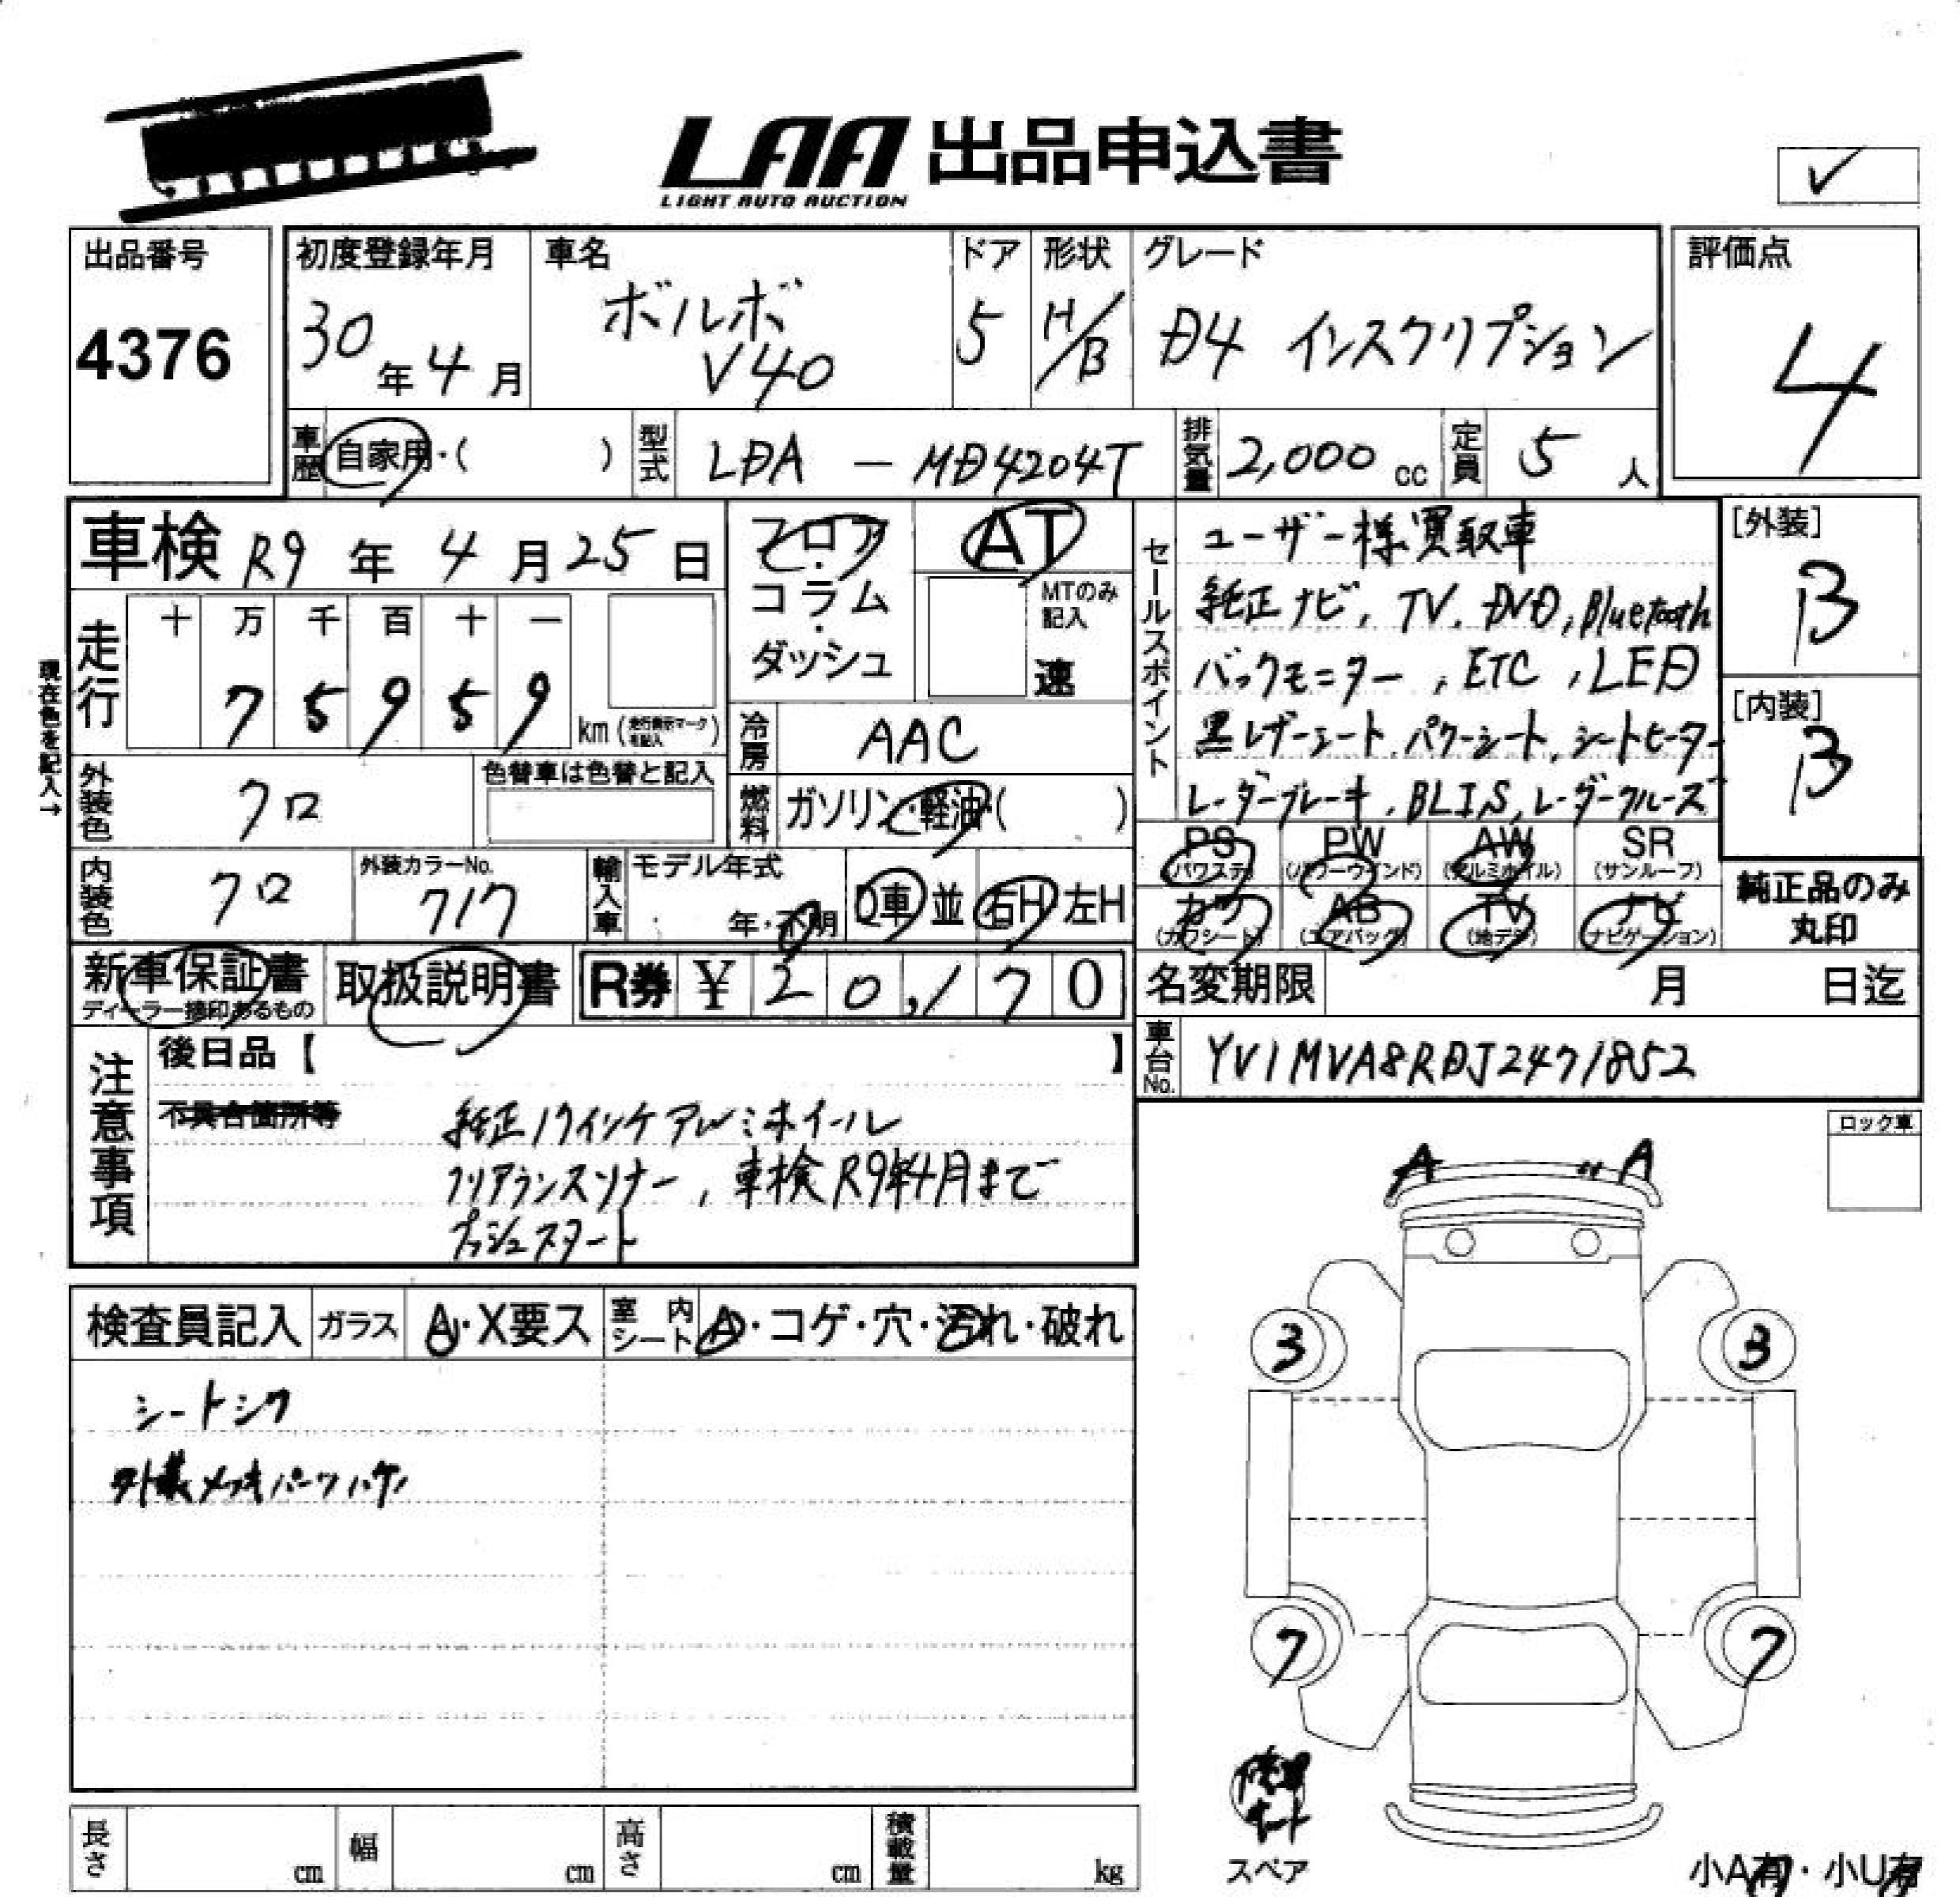 LAA 出品申込書
LIGHT AUTO AUCTION
✓
出品番号
4376
初度登録年月
30年4月
車名
ボルボ
V40
ドア
5
形状
H/B
グレード
D4 インスクリプション
評価点
4
車歴
自家用・( )
型式
LDA - MD4204T
排気量
2,000 cc
定員
5人
車検 R9年4月25日
フロア・
コラム・
ダッシュ
AT
MTのみ記入
速
セールスポイント
ユーザー様買取車
純正ナビ, TV, DVD, Bluetooth
バックモニター, ETC, LED
黒レザーシート, パワーシート, シートヒーター
レーダーブレーキ, BLIS, レーダークルーズ
[外装]
B
[内装]
B
現在色を記入→
走行
十 万 千 百 十 一
7 5 9 5 9
km (走行表示マーク記入)
冷房
AAC
外装色
クロ
色替車は色替と記入
燃料
ガソリン・軽油・( )
内装色
クロ
外装カラーNo.
717
輸入車
モデル年式
年・不明
D車 並
右H 左H
PS
(パワステ)
PW
(パワーウインド)
AW
(アルミホイル)
SR
(サンルーフ)
カワ
(カワシート)
AB
(エアバッグ)
TV
(地デジ)
ナビ
(ナビゲーション)
純正品のみ
丸印
新車保証書
ディーラー捺印あるもの
取扱説明書
R券 ¥ 20,170
名変期限 月 日迄
車台No.
YV1MVA8RDJ2471852
注意事項
後日品【 】
不具合箇所等
純正17インチアルミホイール
クリアランスソナー, 車検R9年4月まで
プッシュスタート
ロック車
A A
検査員記入
ガラス
A・X要ス
室内シート
A・コゲ・穴・汚れ・破れ
シートシワ
外装メッキパーツハゲ
3 3
7 7
スペア
小A有・小U有
長さ cm
幅 cm
高さ cm
積載量 kg